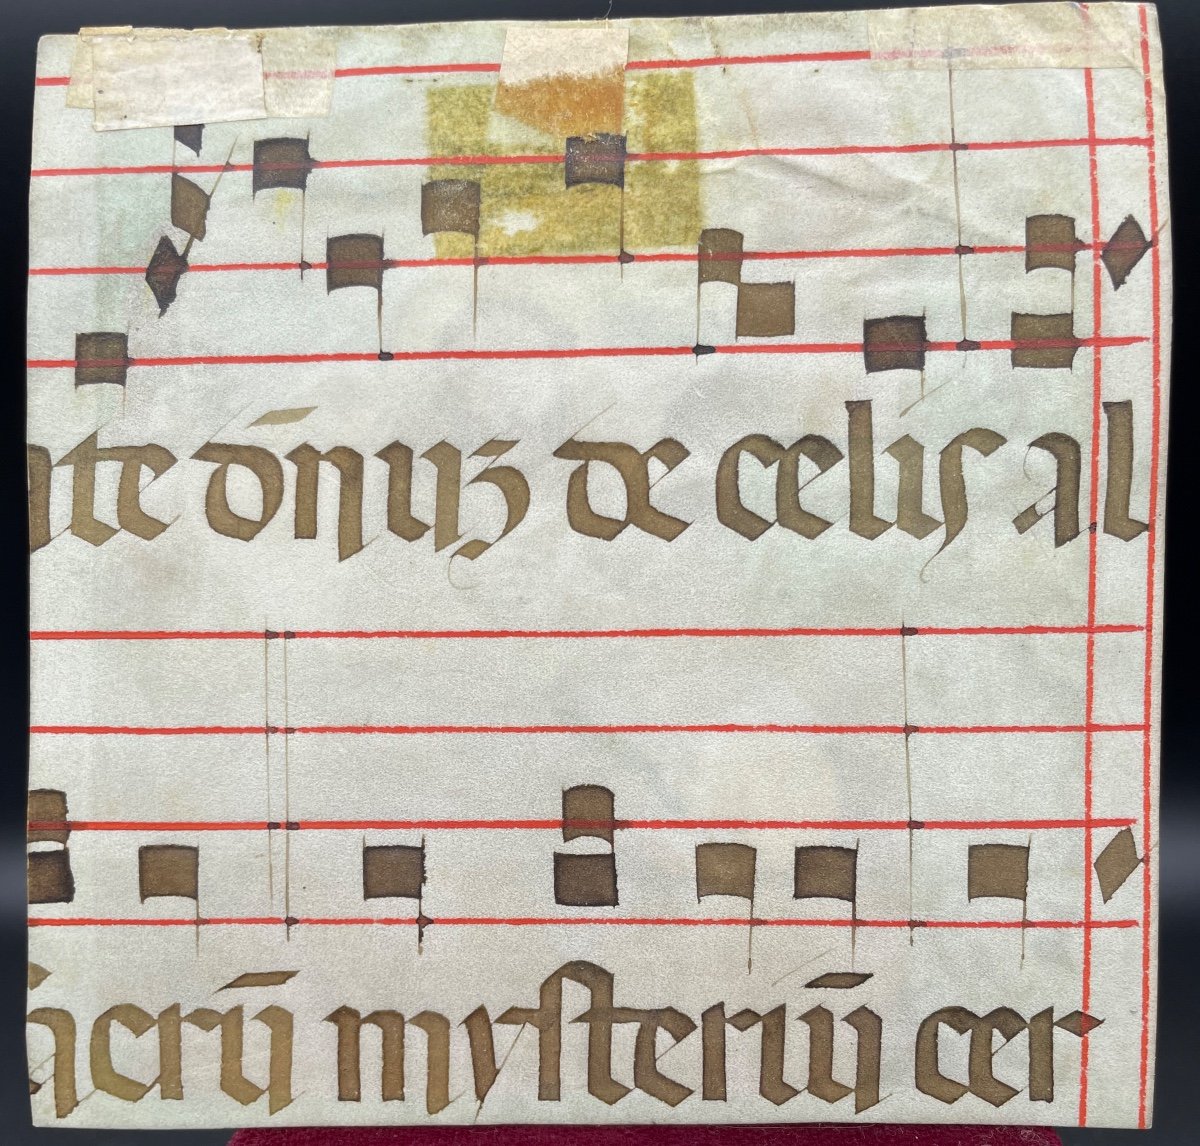 ate dn̄uz de celis al
acrū mysteriū cer